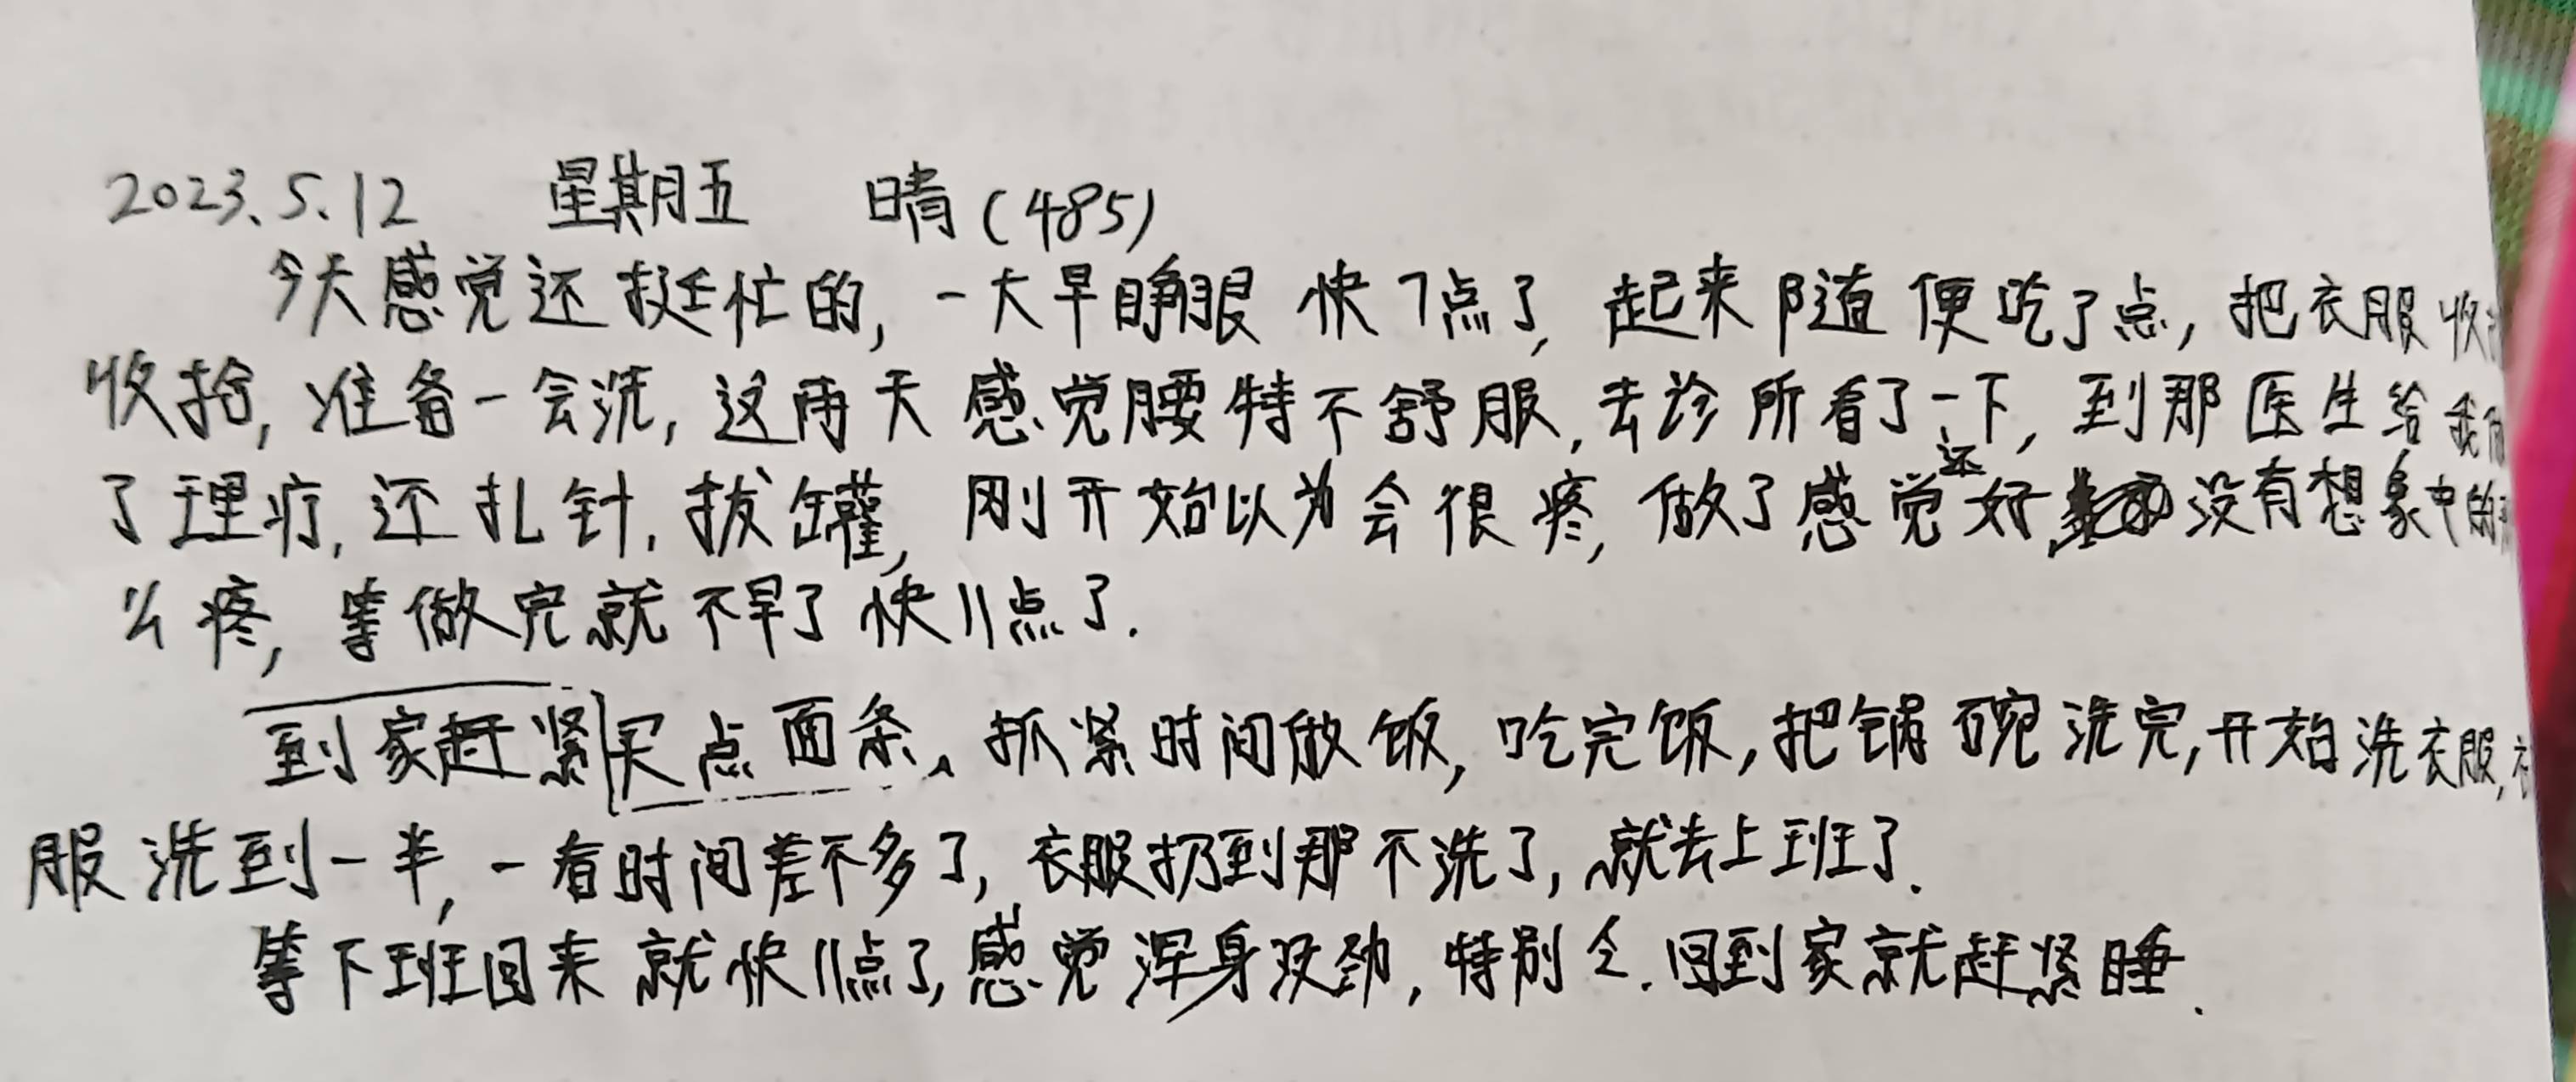 2023.5.12 星期五 晴(485)
今天感觉还挺忙的,一大早睁眼快7点了,起来随便吃了点,把衣服收
收拾,准备一会洗,这两天感觉腰特不舒服,去诊所看了一下,到那医生给我
了理疗,还扎针,拔罐,刚开始以为会很疼,做了感觉还好,没有想象中的
么疼,等做完就不早了快11点了.
到家赶紧买点面条、抓紧时间做饭,吃完饭,把锅碗洗完,开始洗衣服,
服洗到一半,一看时间差不多了,衣服扔到那不洗了,就去上班了.
等下班回来就快11点了,感觉浑身没劲,特别.回到家就赶紧睡.